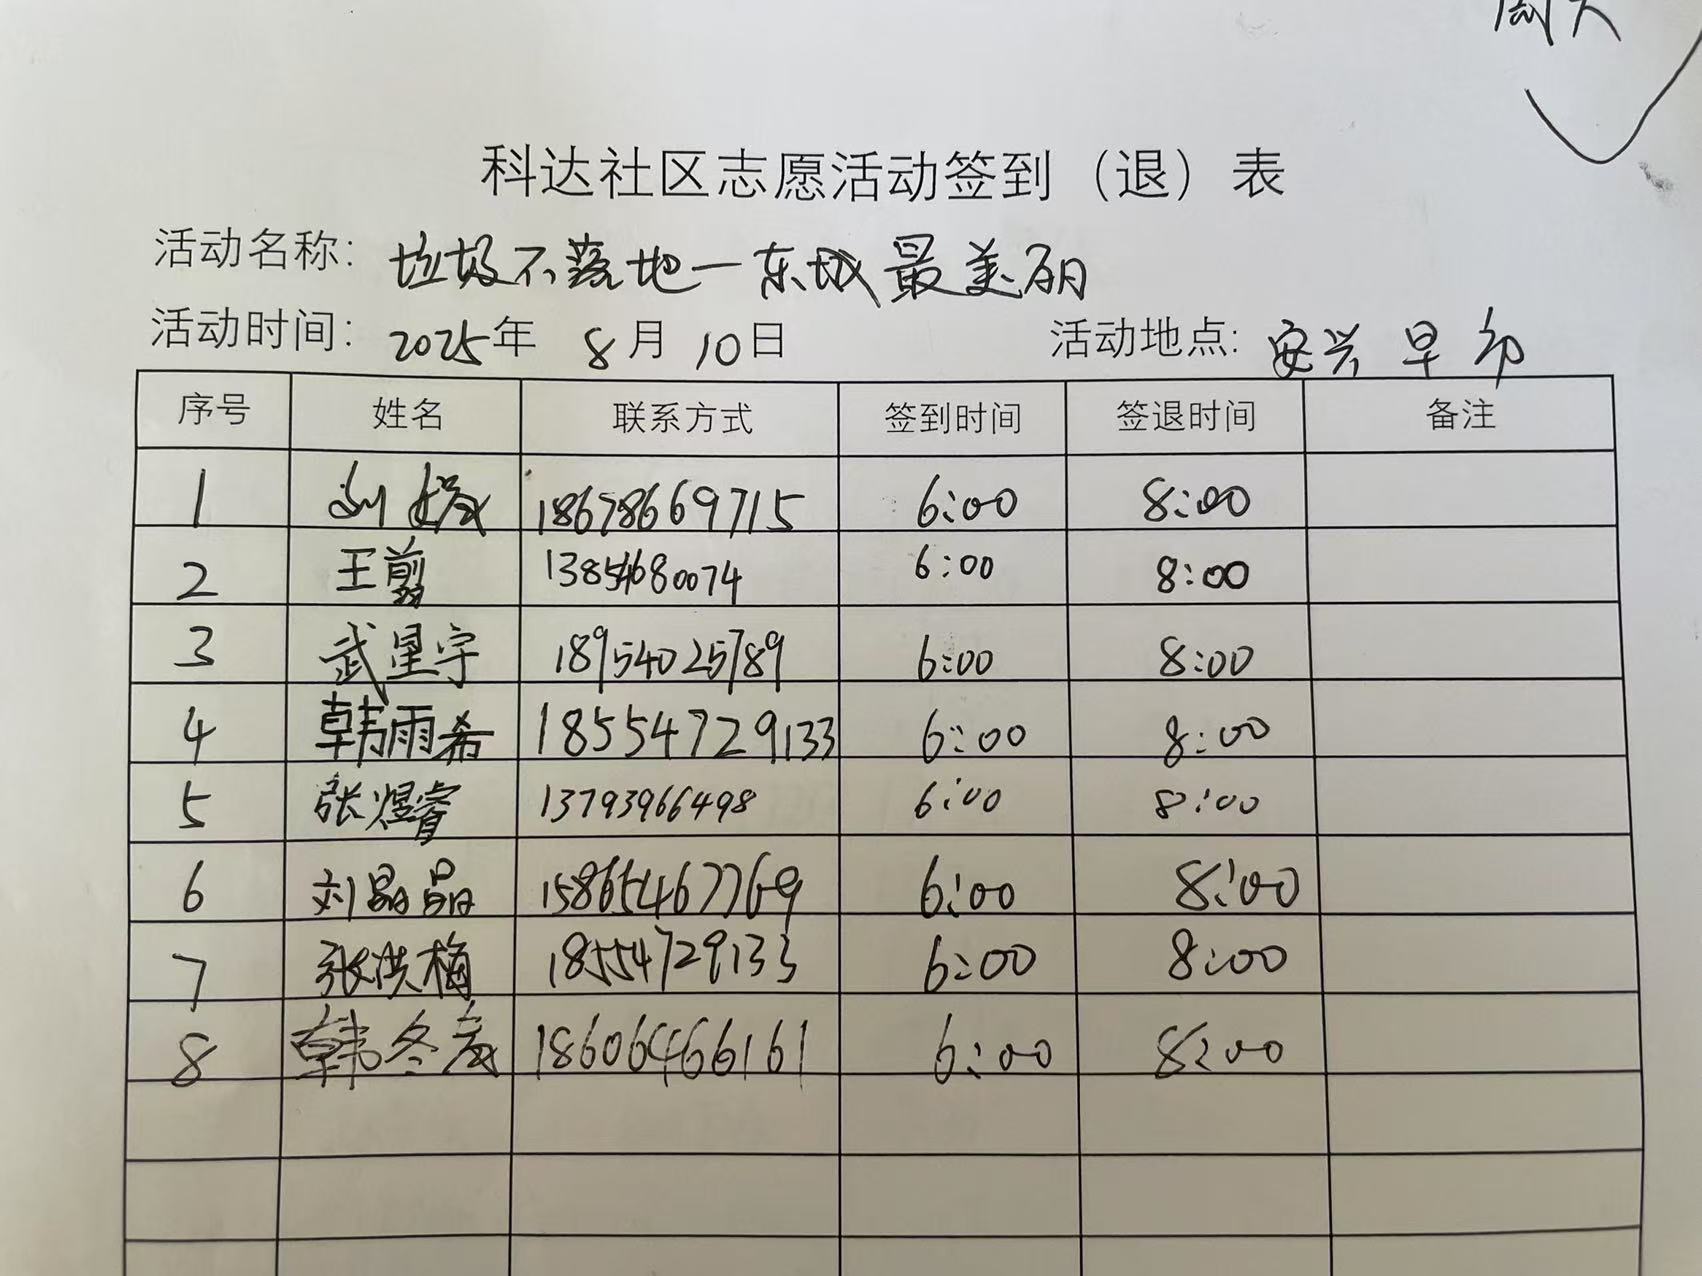 周天
科达社区志愿活动签到（退）表
活动名称：垃圾不落地一东城最美丽
活动时间：2025年 8月 10日 活动地点：安兴早市
序号 姓名 联系方式 签到时间 签退时间 备注
1 刘 18678669715 6:00 8:00
2 王翦 13854680074 6:00 8:00
3 武星宇 18954025789 6:00 8:00
4 韩雨希 18554729133 6:00 8:00
5 张煜睿 13793966498 6:00 8:00
6 刘晶晶 15865467769 6:00 8:00
7 张洪梅 18554729133 6:00 8:00
8 韩冬 18606466161 6:00 8:00